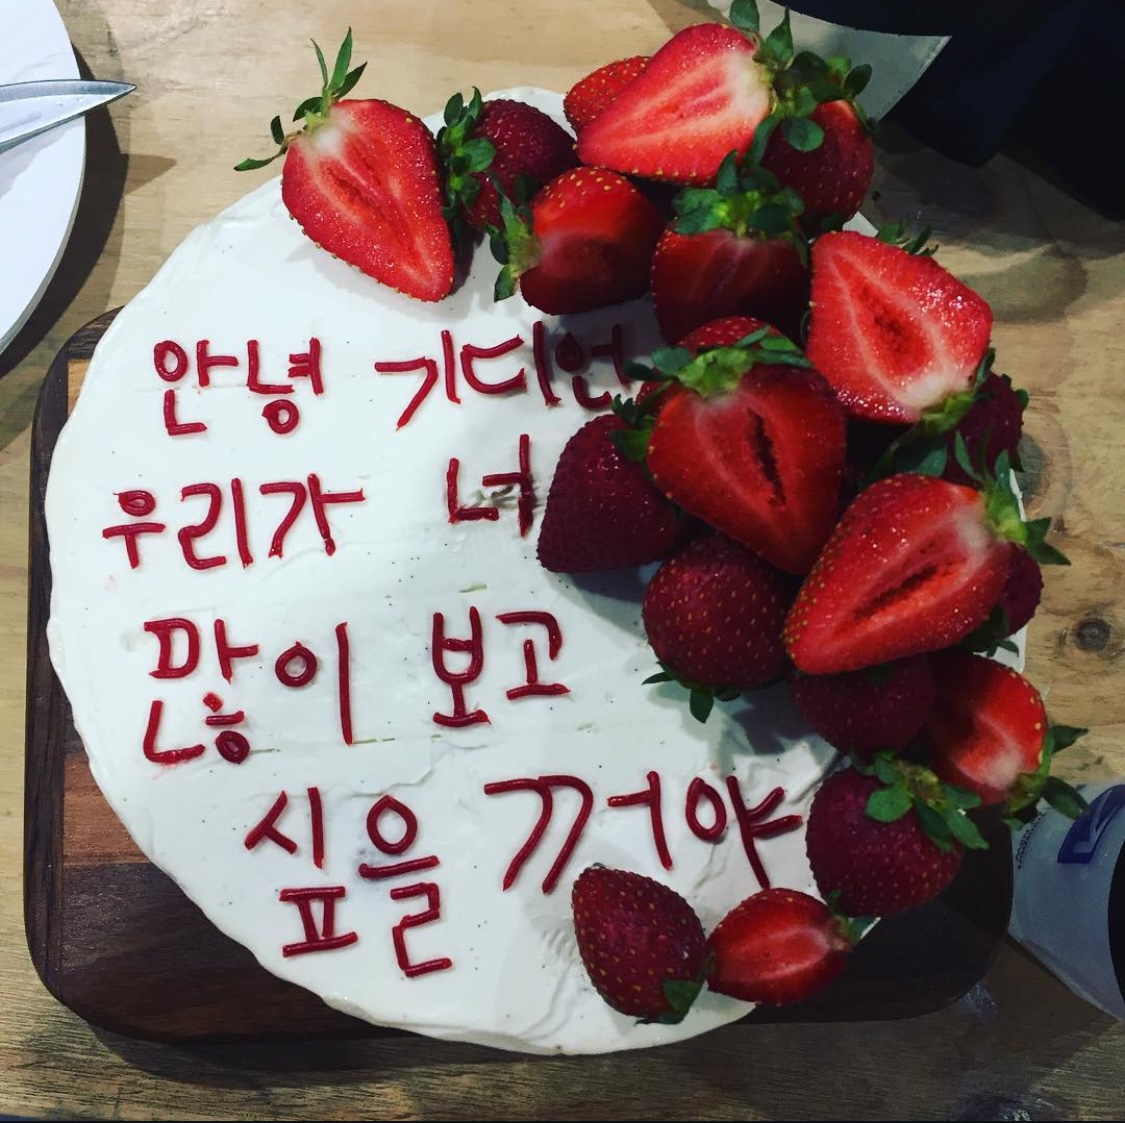 안녕 기디언
우리가 너
많이 보고
싶을 꺼야